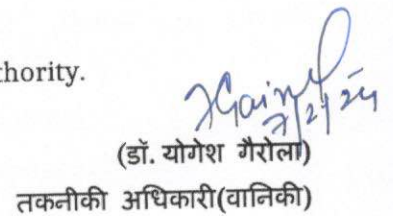 thority.
7/2/24
(डॉ. योगेश गैरोला)
तकनीकी अधिकारी(वानिकी)